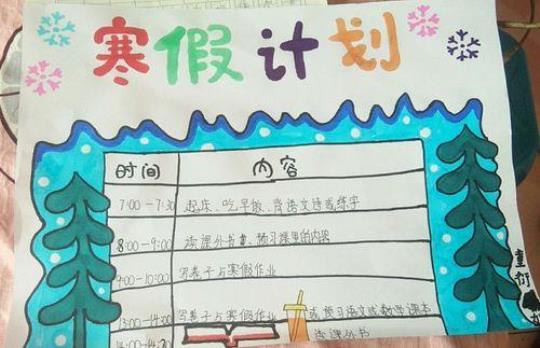 寒假计划
时间 内容
7:00-7:30 起床、吃早饭、背语文诗或练字
8:00-9:00 读课外书、预习课里的内容
9:00-10:00 写卷子与寒假作业
13:00-14:00 写卷子与寒假作业 或预习语文或数学课本
读课外书